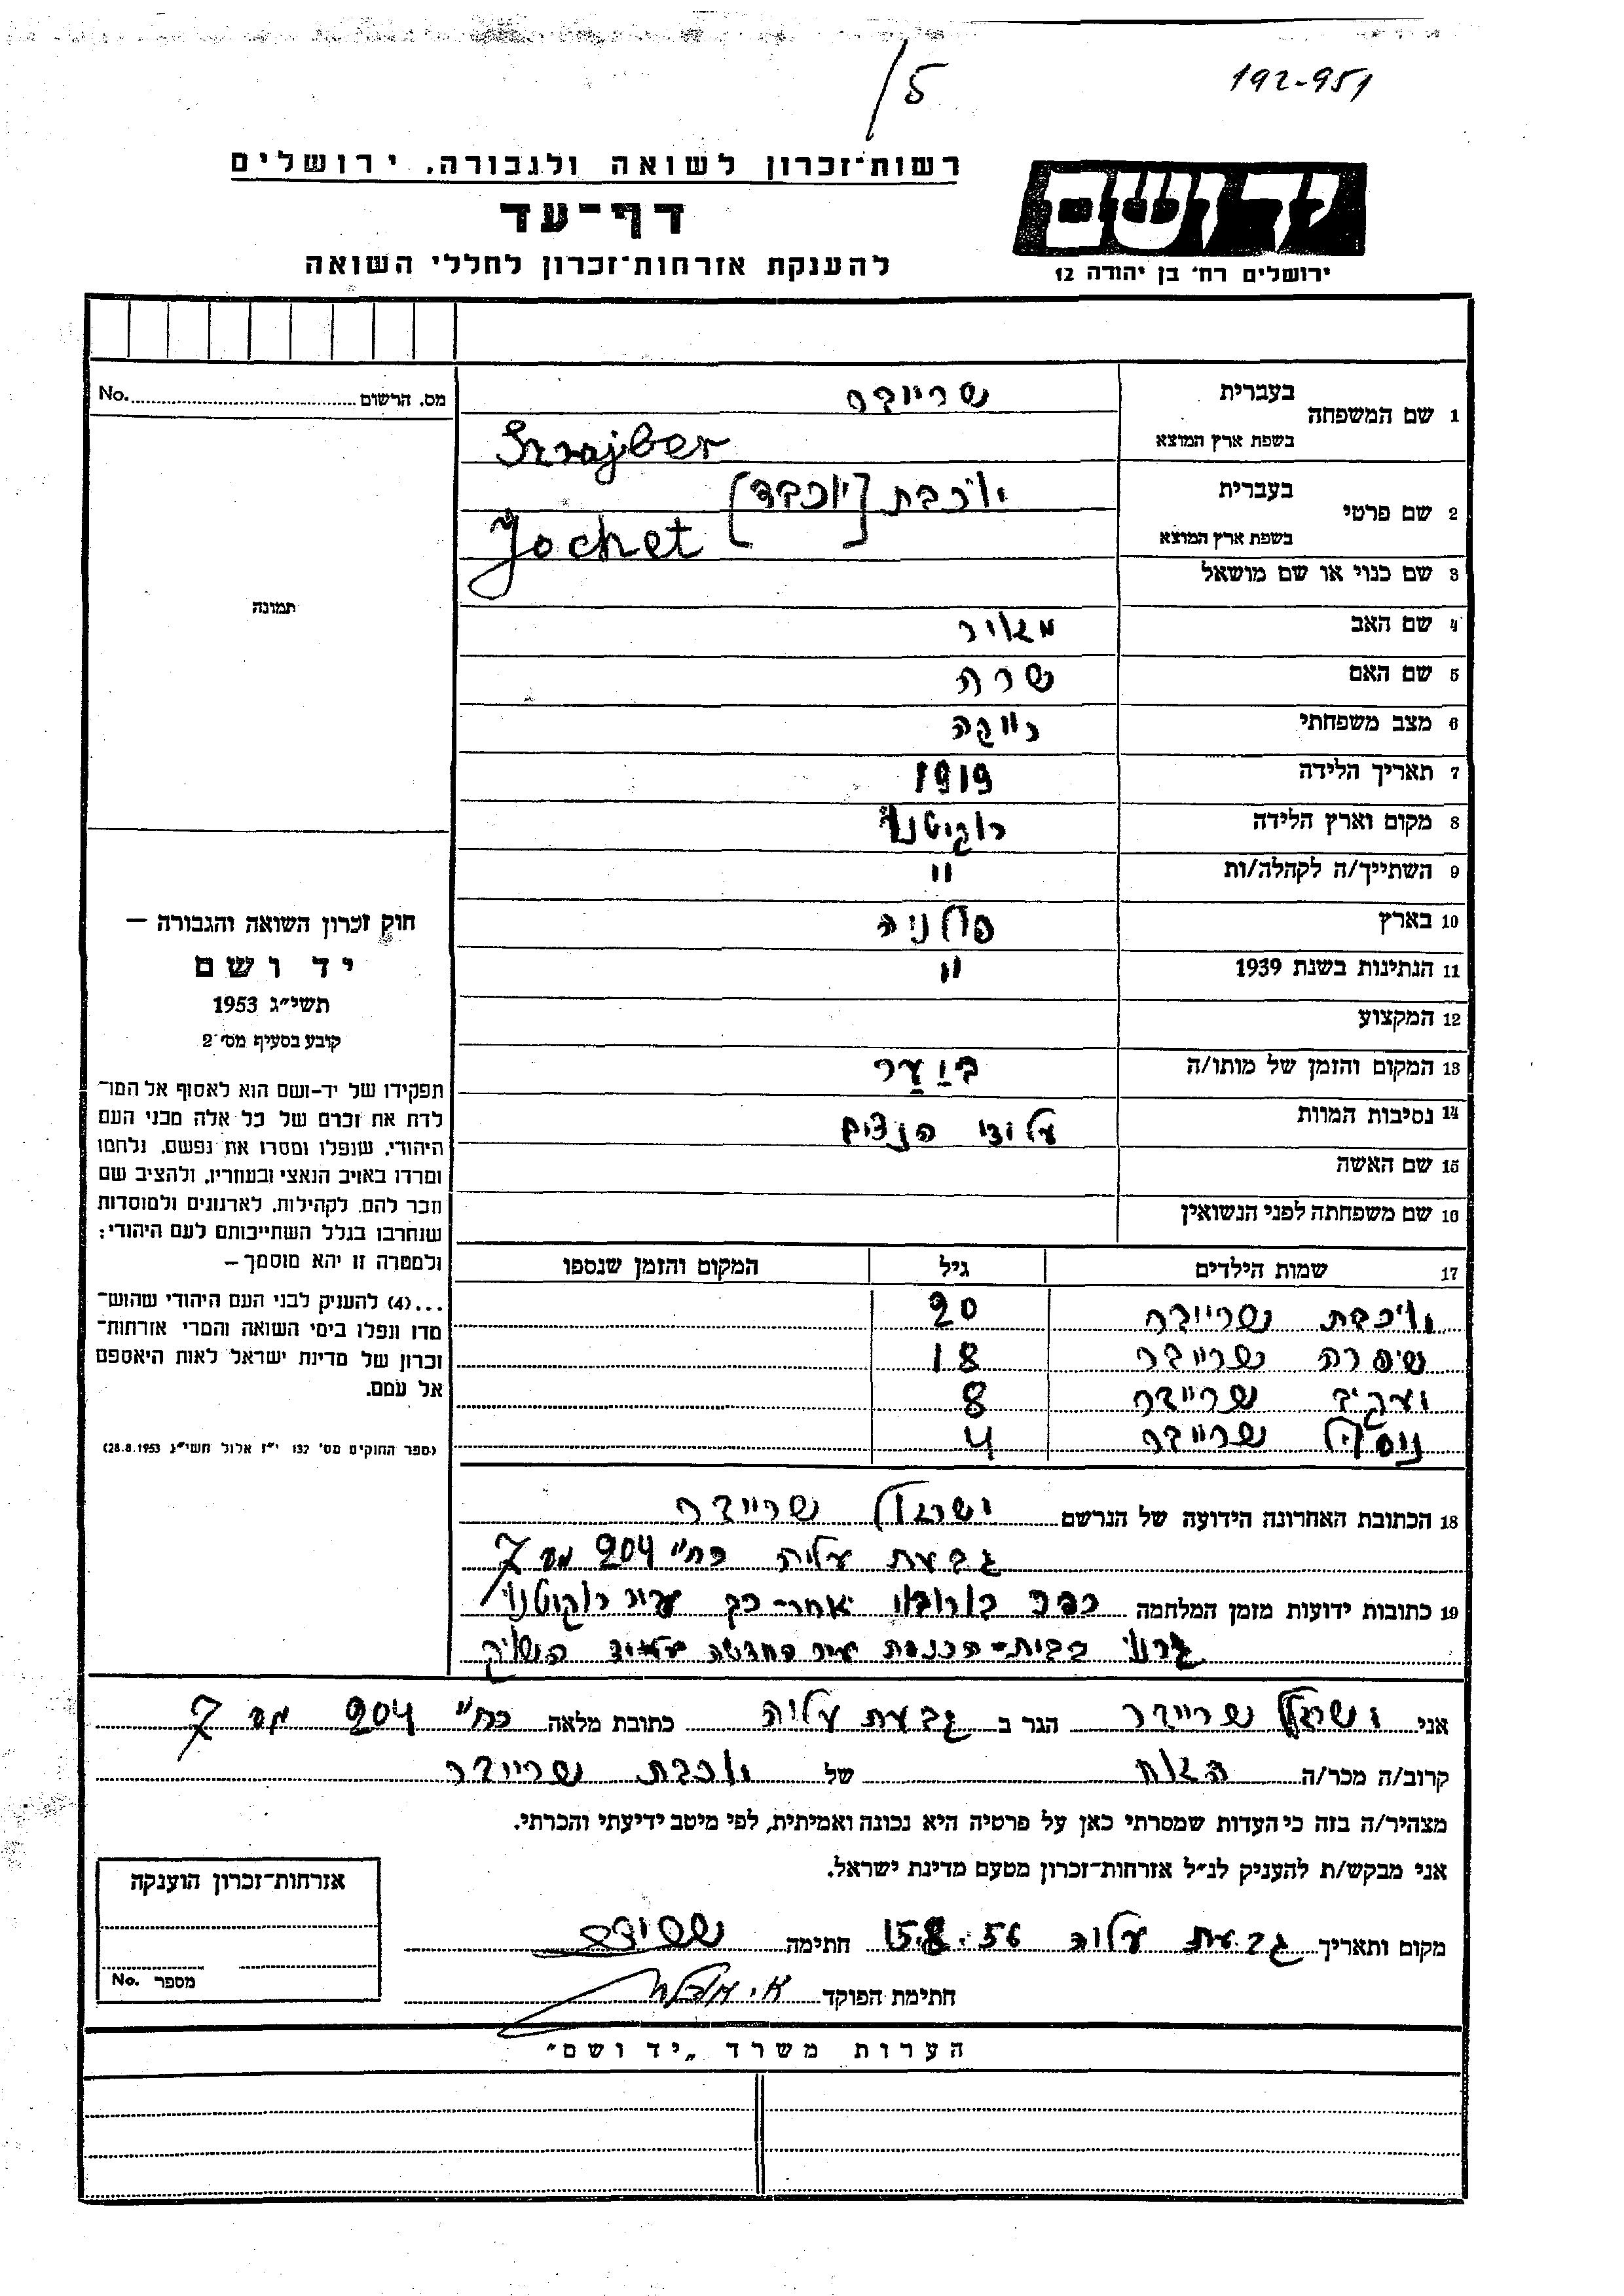 192-951
/5
רשות־זכרון לשואה ולגבורה, ירושלים
דף־עד
להענקת אזרחות־זכרון לחללי השואה
יד ושם
ירושלים רח' בן יהודה 12
1 שם המשפחה בעברית שרייבר
בשפת ארץ המוצא Szrajber
2 שם פרטי בעברית יוכבת [יוכבד]
בשפת ארץ המוצא Jochet
3 שם כנוי או שם מושאל
4 שם האב מאיר
5 שם האם שרה
6 מצב משפחתי רווקה
7 תאריך הלידה 1919
8 מקום וארץ הלידה רוקיטנו
9 השתייך/ה לקהלה/ות "
10 בארץ פולניה
11 הנתינות בשנת 1939 "
12 המקצוע
13 המקום והזמן של מותו/ה ביער
14 נסיבות המוות על ידי הנצים
15 שם האשה
16 שם משפחתה לפני הנשואין
17 שמות הילדים גיל המקום והזמן שנספו
יוכבת שרייבר 20
שיפרה שרייבר 18
יעקיב שרייבר 8
ניסיל שרייבר 4
18 הכתובת האחרונה הידועה של הנרשם ישראל שרייבר
גבעת עליה רח" 204 מס 7
19 כתובות ידועות מזמן המלחמה כפר בורובי אחר-כך עיר רוקיטנו
בבית-הכנסת עיר החדשה
מס. הרשום No.
תמונה
חוק זכרון השואה והגבורה —
יד ושם
תשי"ג 1953
קובע בסעיף מס' 2
תפקידו של יד-ושם הוא לאסוף אל המו־
לדת את זכרם של כל אלה מבני העם
היהודי, שנפלו ומסרו את נפשם, נלחמו
ומרדו באויב הנאצי ובעוזריו, ולהציב שם
וזכר להם, לקהילות, לארגונים ולמוסדות
שנחרבו בגלל השתייכותם לעם היהודי;
ולמטרה זו יהא מוסמך —
...(4) להעניק לבני העם היהודי שהוש־
מדו ונפלו בימי השואה והמרי אזרחות־
זכרון של מדינת ישראל לאות היאספם
אל עמם.
(ספר החוקים מס' 132 י"ז אלול תשי"ג 28.8.1953)
אני ישראל שרייבר הגר ב גבעת עליה כתובת מלאה רח" 204 מס 7
קרוב/ה מכר/ה האח של יוכבת שרייבר
מצהיר/ה בזה כי העדות שמסרתי כאן על פרטיה היא נכונה ואמיתית, לפי מיטב ידיעתי והכרתי.
אני מבקש/ת להעניק לנ"ל אזרחות־זכרון מטעם מדינת ישראל.
מקום ותאריך גבעת עליה 15.8.56 חתימה
חתימת הפוקד
אזרחות־זכרון הוענקה
מספר No.
הערות משרד „יד ושם"